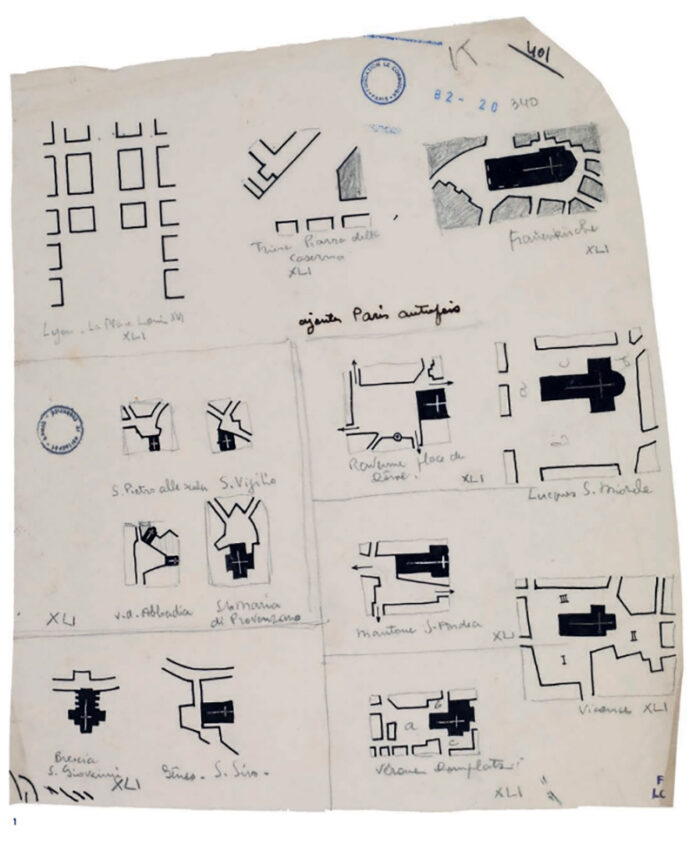 K
401
FONDATION LE CORBUSIER
B2-20 340
Lyon. La Place Louis XVI
XLI
Piazza della
Caserma
XLI
Frauenkirche
XLI
ajouter Paris autrefois
S. Pietro alle scala
S. Vigilio
v.d. Abbadia
Sta Maria
di Provenzano
XLI
Ravenne place du
Dôme.
XLI
Lucques S. Michele
Mantoue S. Andrea
XLI
I
II
III
Vicence XLI
Brescia
S. Giovanni
XLI
Gênes. S. Siro.
a
b
c
Vérone Domplatz
XLI
F
LC
1